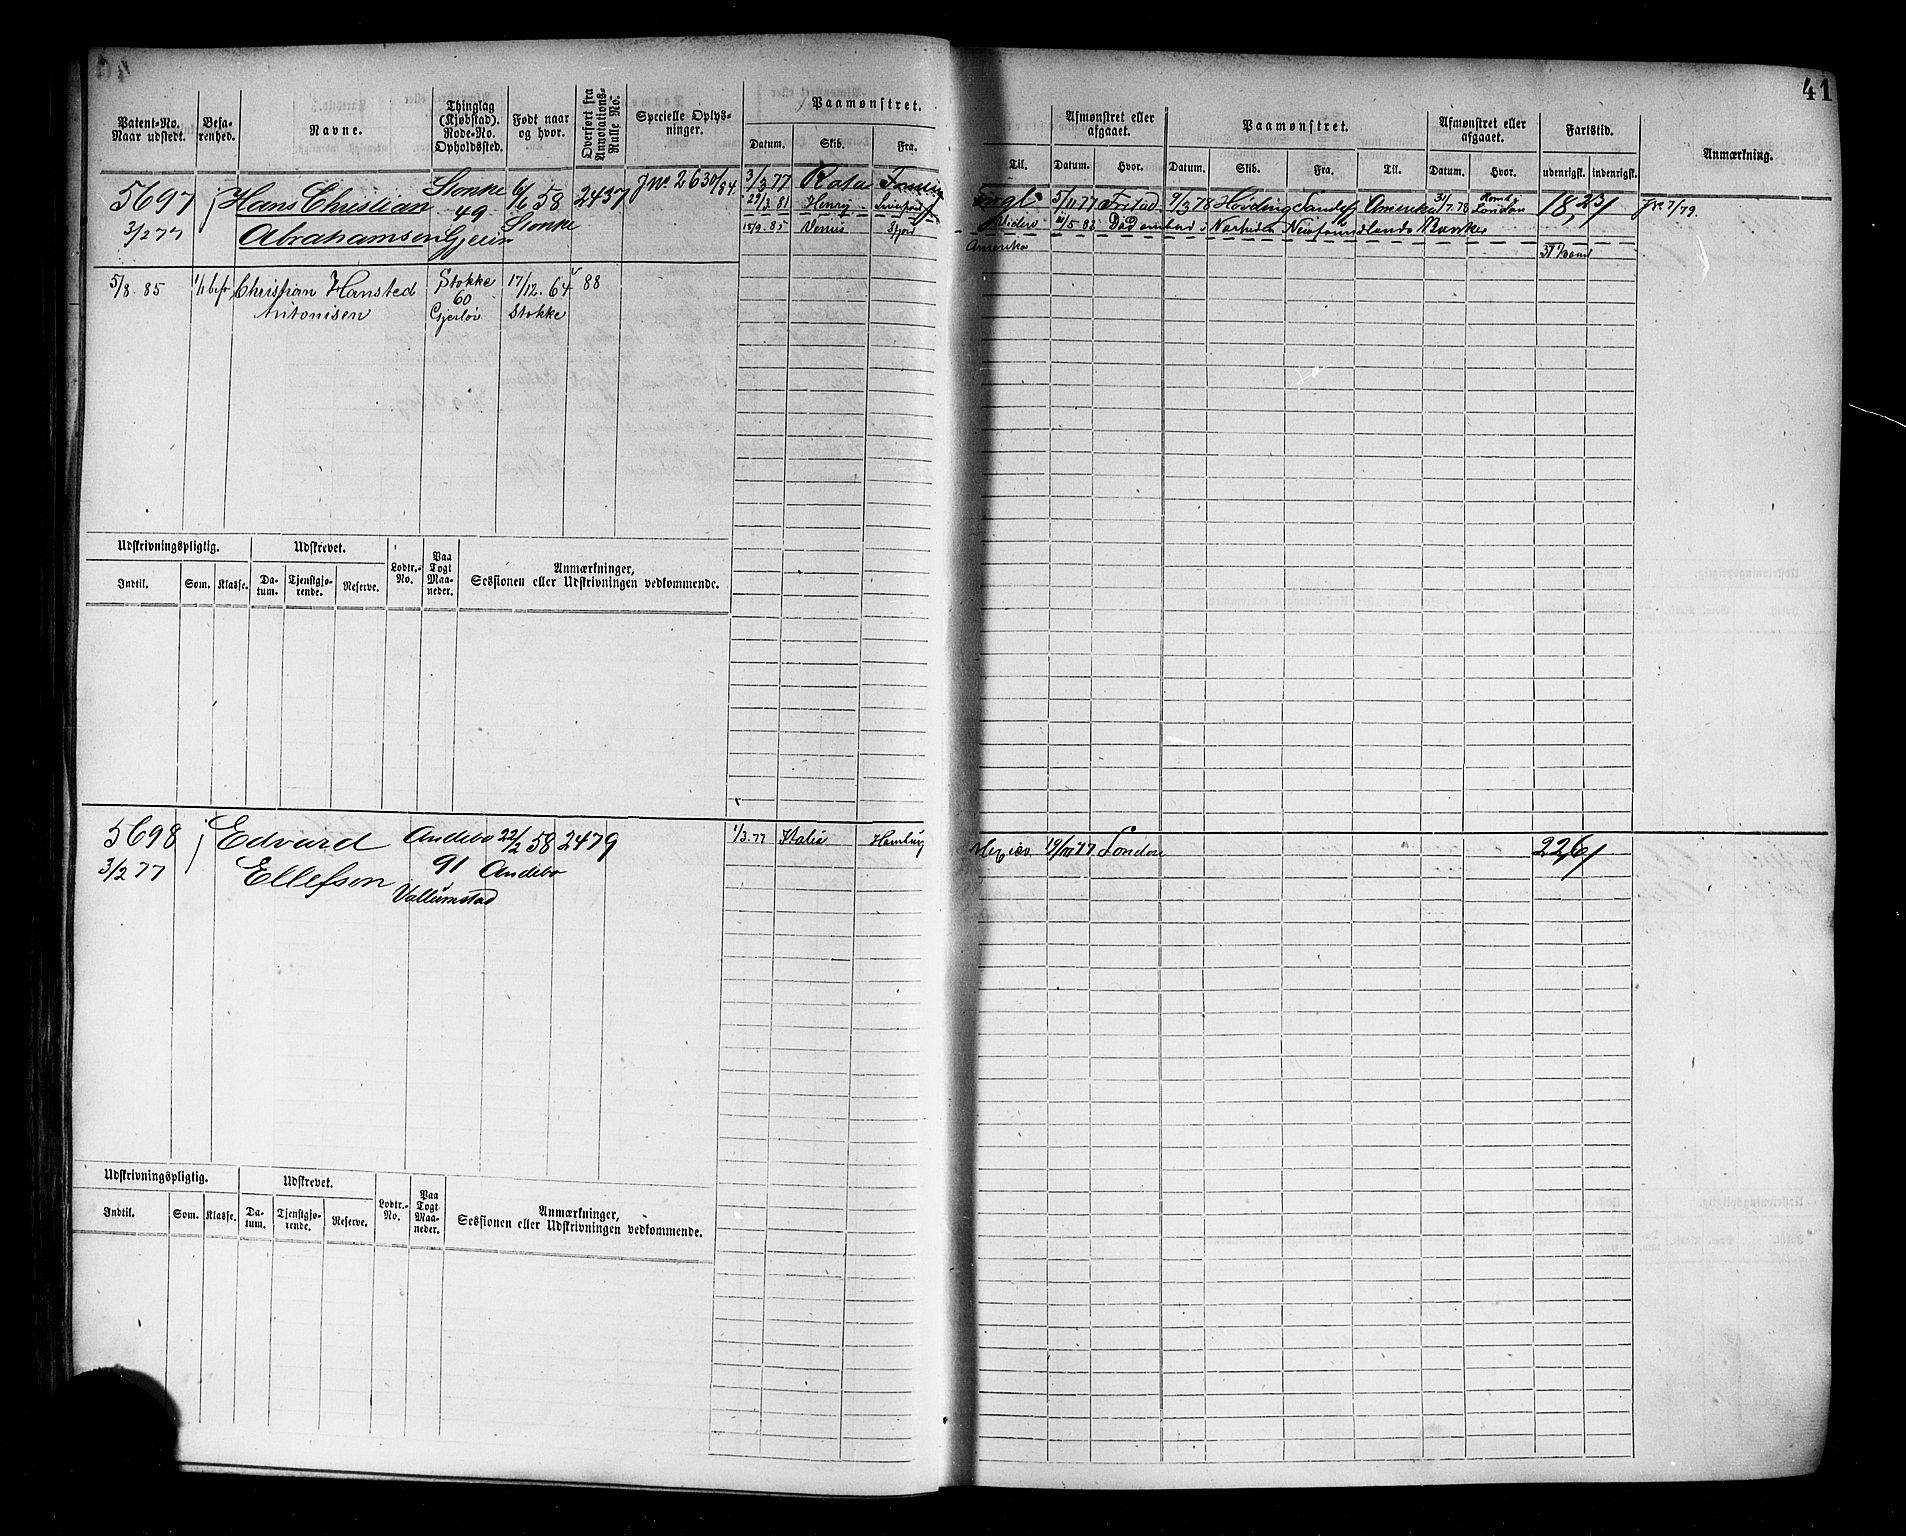 41
Patent-No. Naar udstedt.
Befarenhed.
Navne.
Thinglag (Kjøbstad). Rode-No. Opholdssted.
Født naar og hvor.
Overført fra Annotations-Rulle No.
Specielle Oplysninger.
Paamønstret.
Datum. Skib. Fra. Til.
Afmønstret eller afgaaet.
Datum. Hvor.
Paamønstret.
Datum. Skib. Fra. Til.
Afmønstret eller afgaaet.
Datum. Hvor.
Fartstid.
udenrigsk. indenrigsk.
Anmærkning.
5697 Hans Christian Stokke 6/6 58 2437 J no 2630/84 3/3 77 Rota 5/11 77 Fr.stad 9/3 78 Hviding Sandefj Amerika 31/7.78 London 18,23 J no 7/79.
3/2 77 Abrahamsen 49 Gjein Stokke 29/3 81 Henry Liverpool
15/9.85 Venus Amerika
5/8.85 1/1 bef Christian Hansted Stokke 17/12.64 88
Antonisen 60 Stokke
Udskrivningspligtig. Udskrevet. Lodtr.-No. Paa Togt Maaneder. Anmærkninger, Sessionen eller Udskrivningen vedkommende.
Indtil. Som. Klasse. Datum. Tjenstgjørende. Reserve.
5698 Edvard Andebo 22/2 58 2479 1/3.77 Italia Hamburg 19/10 77 London 22,6
3/2 77 Ellefsen 91 Andebo
Vallumstad
Udskrivningspligtig. Udskrevet. Lodtr.-No. Paa Togt Maaneder. Anmærkninger, Sessionen eller Udskrivningen vedkommende.
Indtil. Som. Klasse. Datum. Tjenstgjørende. Reserve.